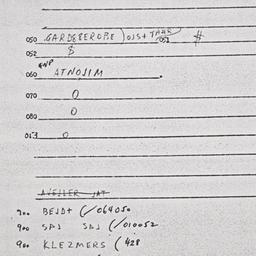 050 GARDEBEROBE) OJS+ TAHR 051 #
052 $
GNP
060 ATNOJIM .
070 0
080 0
013 0
AVELLER JAT
700 BEJD+ (/064050
900 SPJ SNJ (/010052
900 KLEZMERS (428